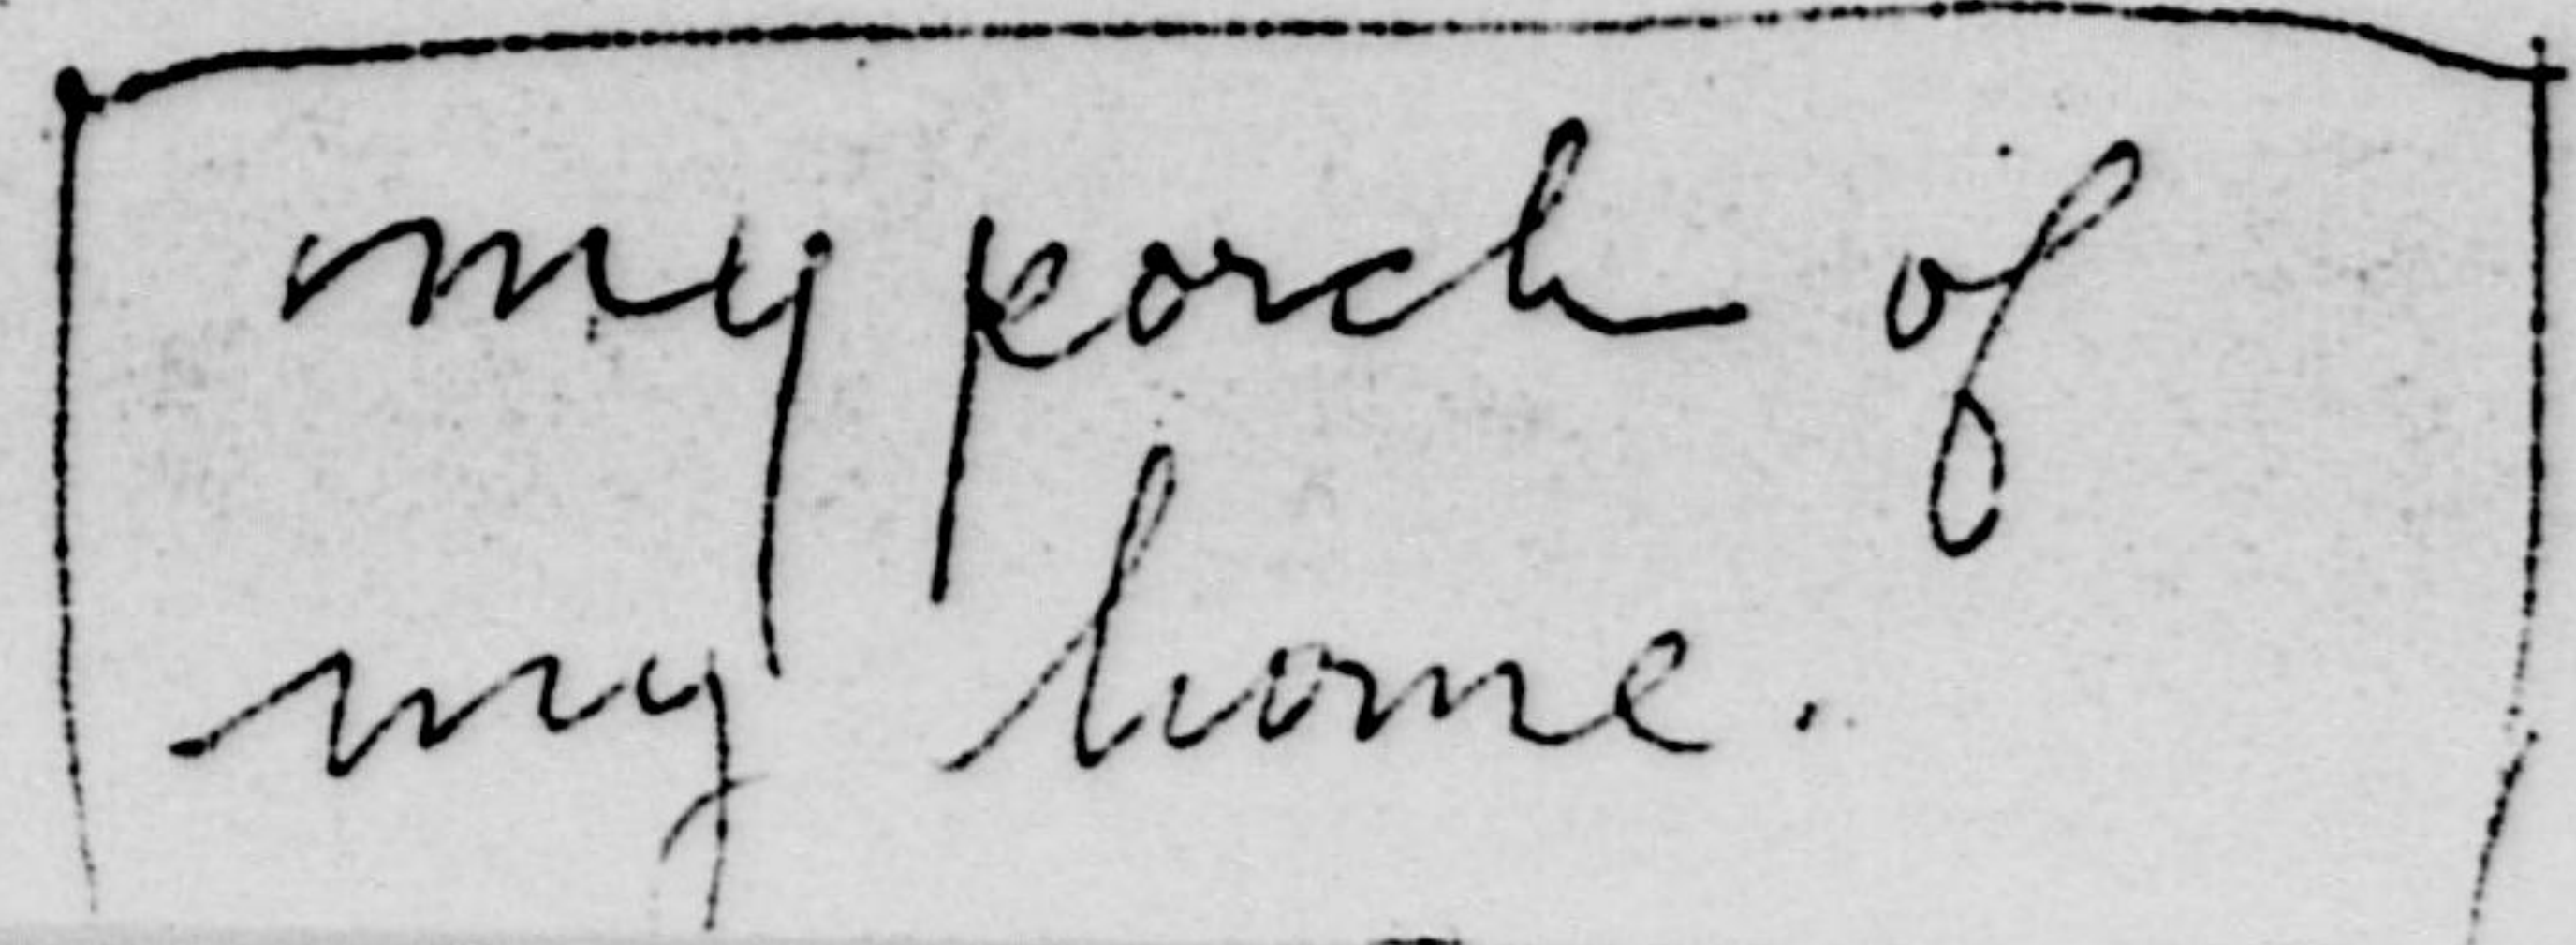 my porch of
my home.